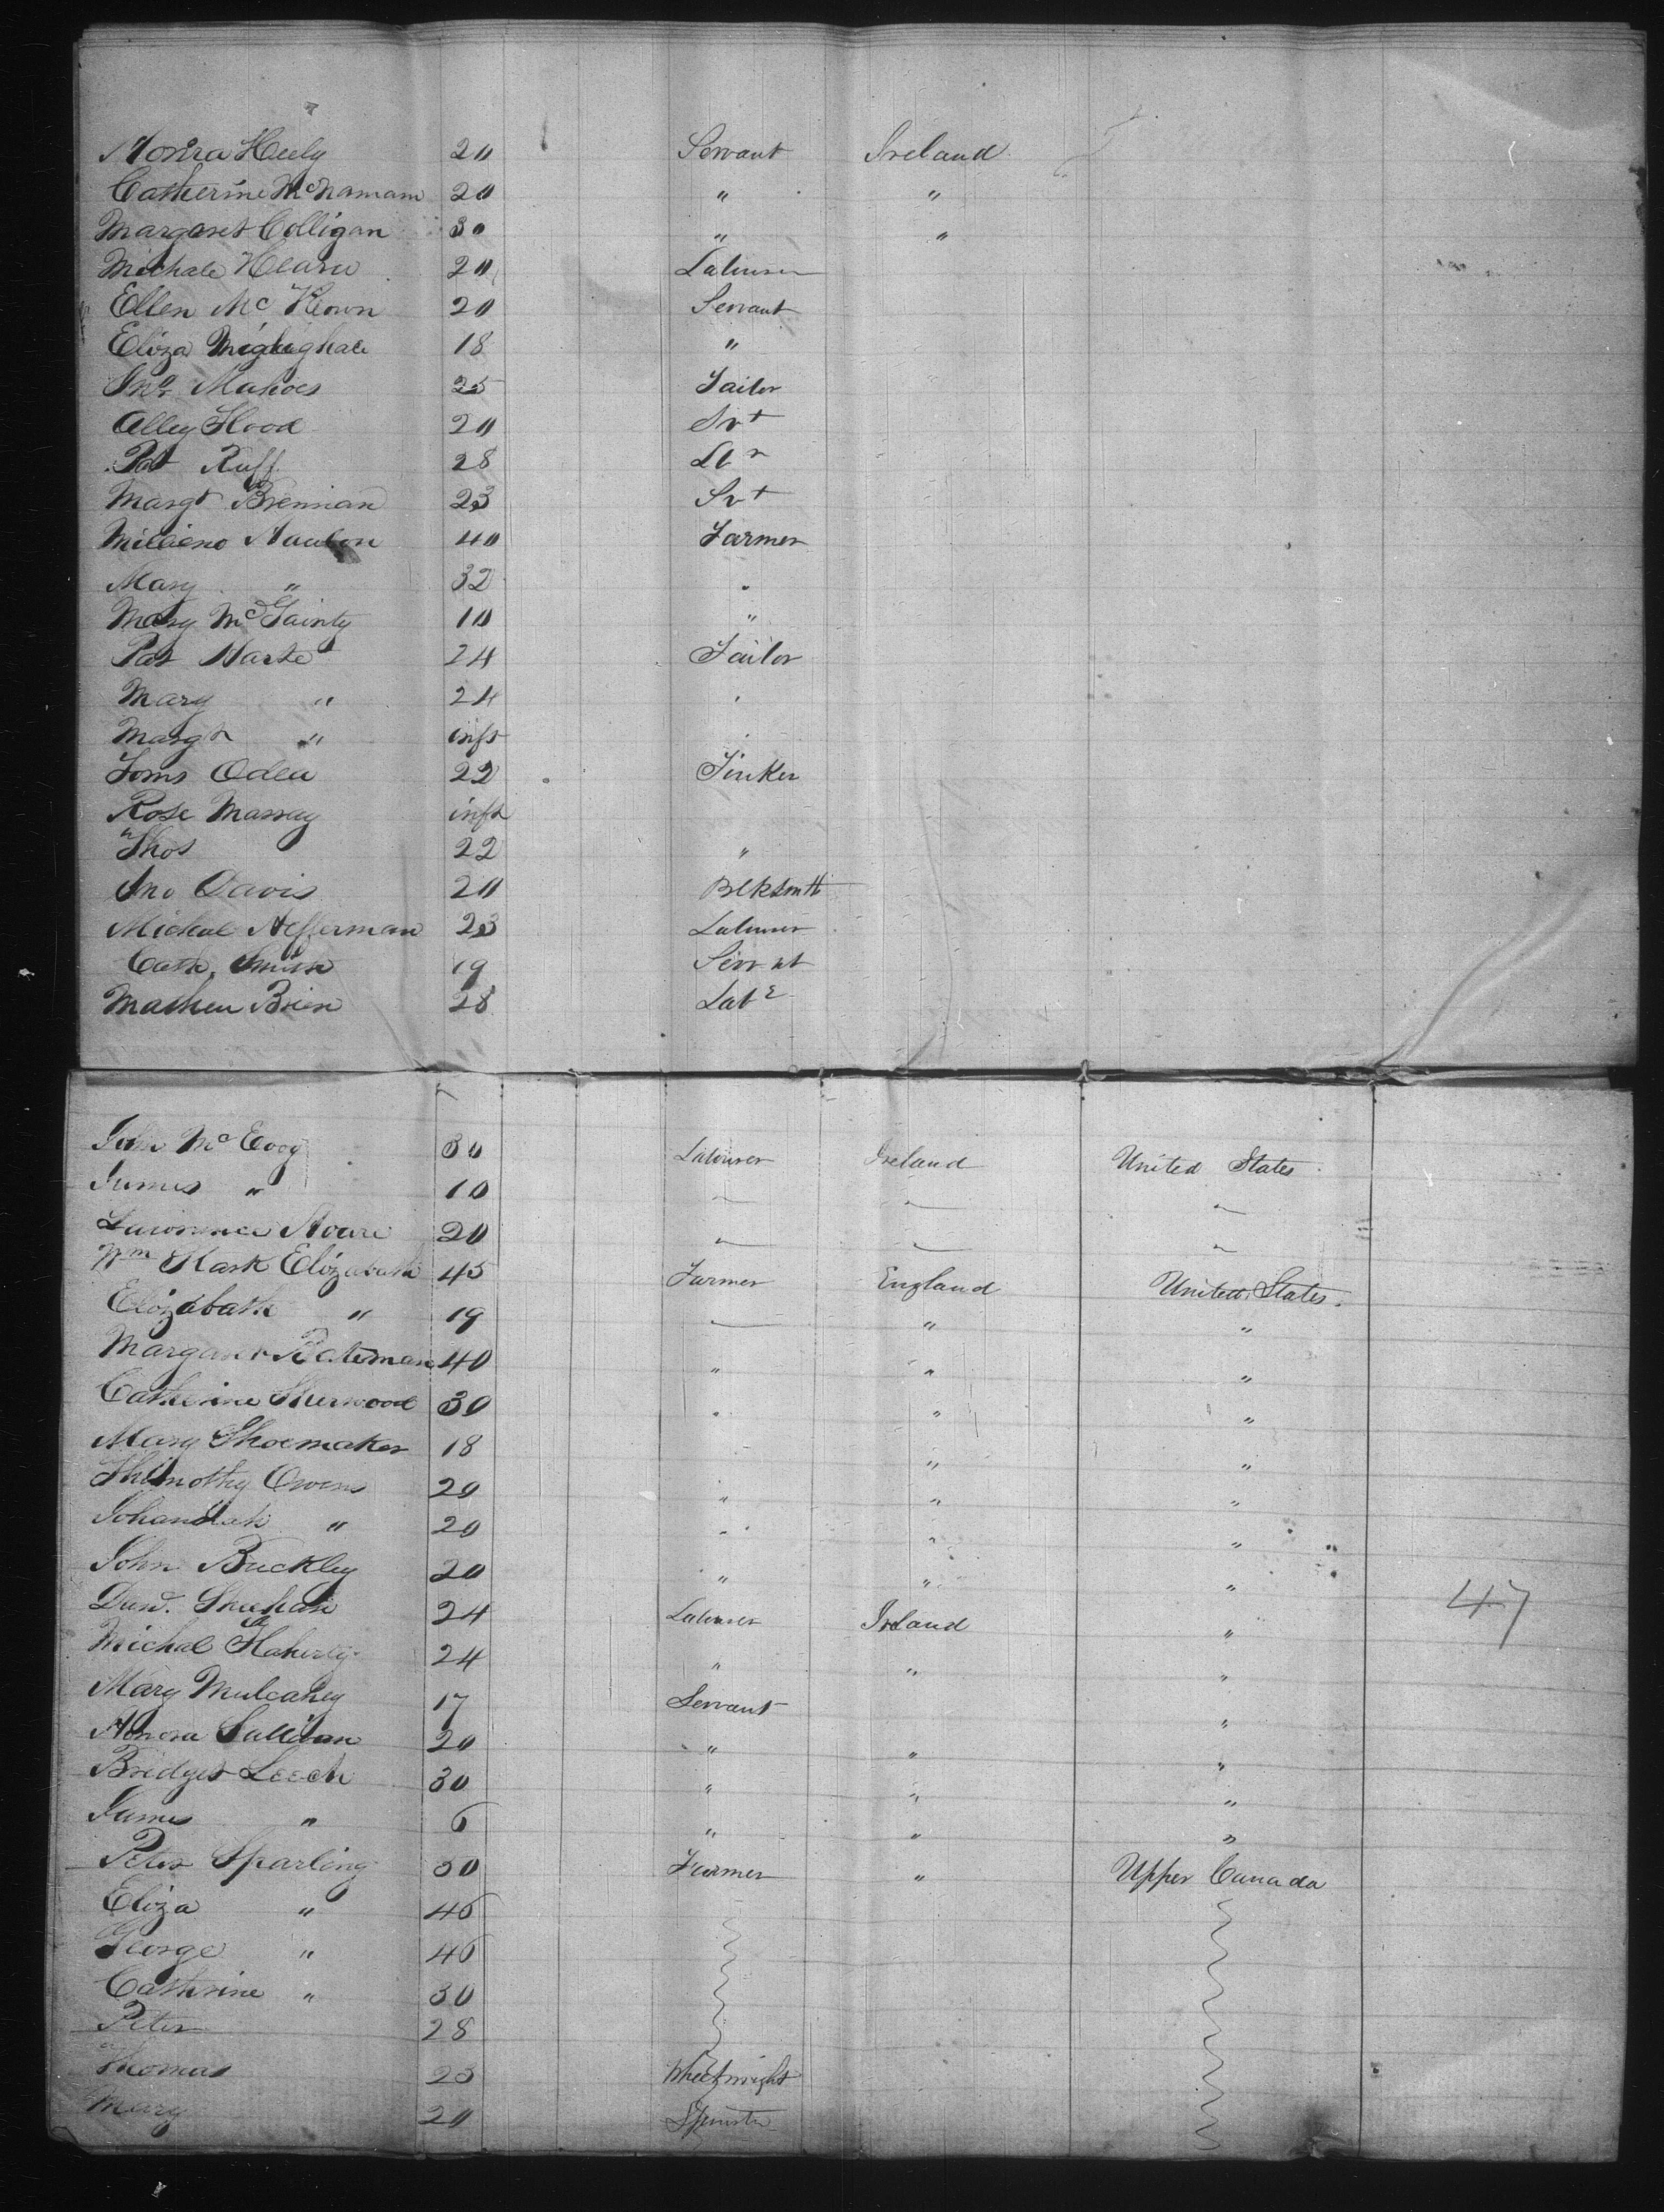 Honra Heely 20 Servant Ireland
Catherine McNamara 20 " "
Margaret Colligan 30 " "
Michale 20 Labourer
Ellen Mc Keown 20 Servant
Eliza 18 "
Jno Mahoes 25 Tailor
Alley Flood 20 Svt
Pat Ruff 28 Lbr
Margt Brennan 23 Svt
40 Farmer
Mary " 32 "
Mary McGainty 10 "
Pat Harte 24 Tailor
Mary " 24
Margt " inft
Toms Odea 22 Tinker
Rose Massey inft
Thos " 22 "
Jno Davis 20 Blksmth
Michael Heffernan 23 Labourer
Cath. Smith 19 Servnt
Mathew Brien 28 Labr
John McEvoy 30 Labourer Ireland United States
James " 10 " " "
Lawrence Hoare 20 " " "
Wm Elizabath 45 Farmer England United States
Elizabath " 19 " " "
Margaret Bateman 40 " " "
Catherine Sherwood 30 " " "
Mary Shoemaker 18 " "
Thimothy Owens 20 " " "
Johannah " 20 " " "
John Buckley 20 " " "
Sheehan 24 Labourer Ireland "
47
Michal Flaherty 24 " " "
Mary Mulcahey 17 Servant "
Honora Sullivan 20 " " "
Bridget Leech 30 " " "
James " 6 " " "
Peter Sparling 50 Farmer " Upper Canada
Eliza " 46
George " 46
Cathrine " 30
Peter 28
Thomas 25 Wheelwright
Mary 20 Spinster